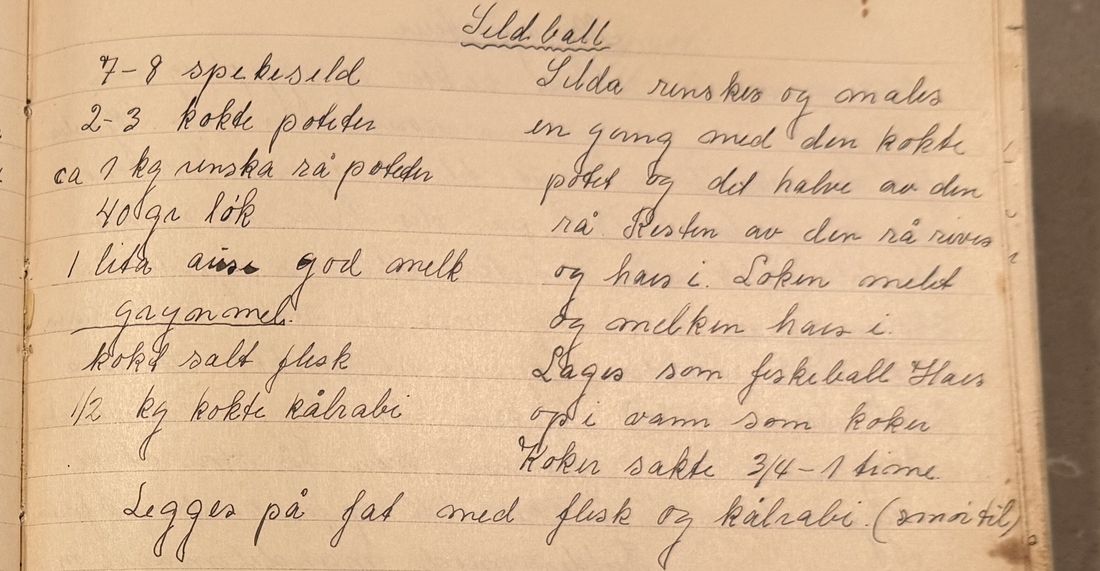 Sildball
7-8 spekesild
2-3 kokte poteter
ca 1 kg renska rå poteter
40 gr løk
1 lita ause god melk
grynmel.
kokt salt flesk
1/2 kg kokte kålrabi
Silda renskes og males
en gang med den kokte
potet og det halve av den
rå. Resten av den rå rives
og haes i. Løken melet
og melken haes i.
Lages som fiskeball Haes
op i vann som koker
Koker sakte 3/4-1 time.
Legges på fat med flesk og kålrabi. (smør til)